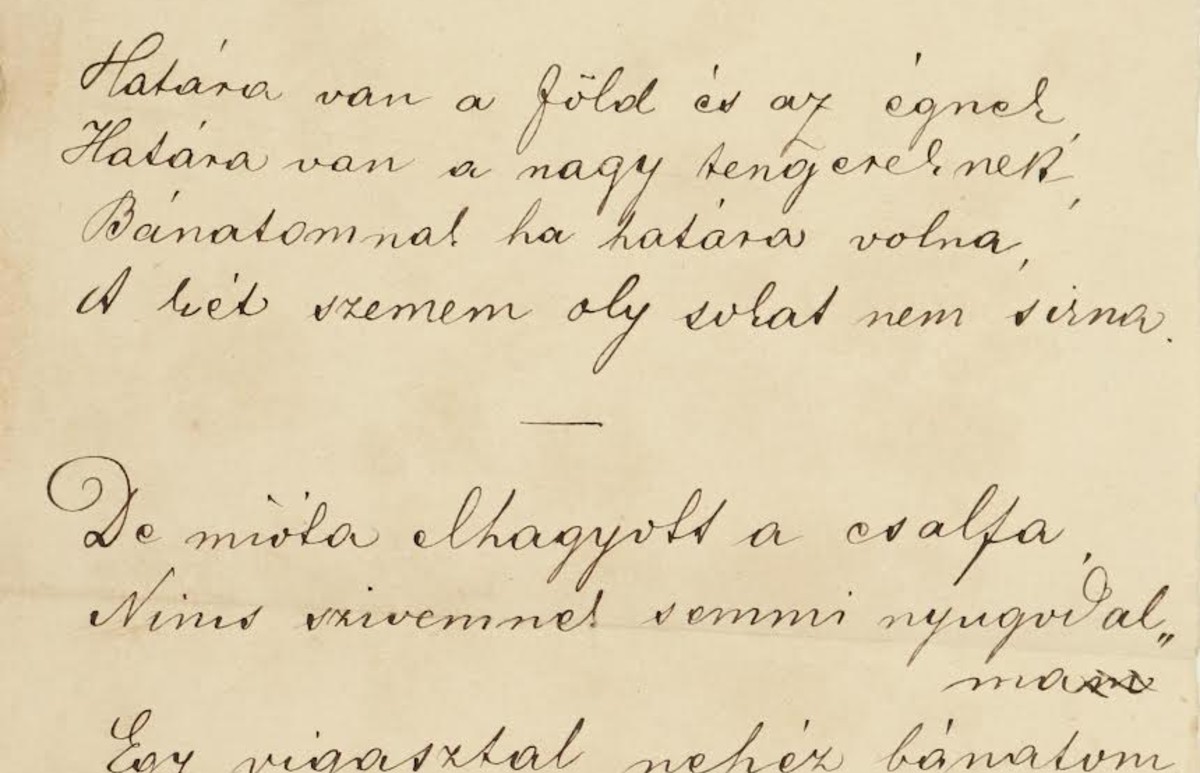 Határa van a föld és az égnek,
Határa van a nagy tengereknek,
Bánatomnak ha határa volna,
A két szemem oly sokat nem sirna.
—
De mióta elhagyott a csalfa,
Nincs szivemnek semmi nyugodal„
ma
Egy vigasztal nehéz bánatom